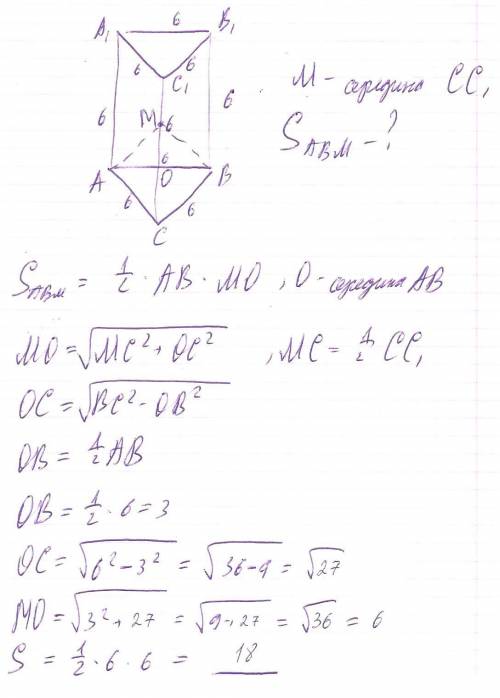 A₁ 6 B₁
6 6
C₁
6 M 6 6
A 6 O B
6 6
C
M - середина CC₁
S_ABM - ?
S_ABM = 1/2 · AB · MO , O - середина AB
MO = √(MC² + OC²) , MC = 1/2 CC₁
OC = √(BC² - OB²)
OB = 1/2 AB
OB = 1/2 · 6 = 3
OC = √(6² - 3²) = √(36 - 9) = √27
MO = √(3² + 27) = √(9 + 27) = √36 = 6
S = 1/2 · 6 · 6 = 18